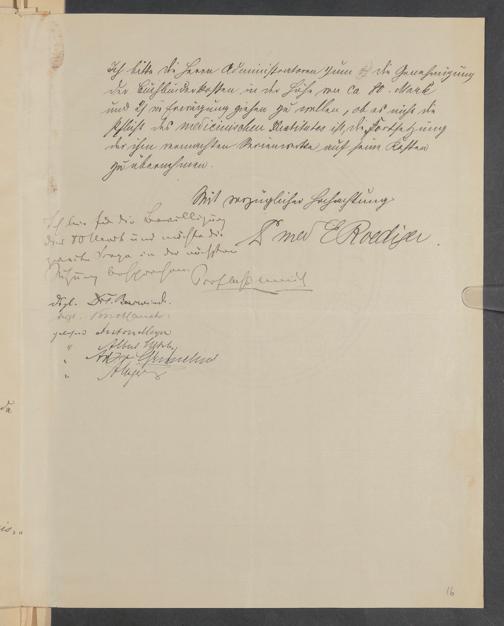 Ich bitte die Herren Administratoren zum 1) die Genehmigung
der Buchbinderkosten in der Höhe von ca 80. Mark
und 2) in Erwägung ziehen zu wollen, ob es nicht die
Pflicht des medicinischen Institutes ist, die Fortsetzung
der ihm vermachten Serienwerke auf seine Kosten
zu übernehmen.
Mit vorzüglicher Hochachtung
Dr med E Roediger.
Ich bin für die Bewilligung
der 80 Mark und möchte die
zweite Frage in der nächsten
Sitzung besprechen.
dsgl. Dr.
dsgl.
gelesen Anton Heyn
" Albert
"
"
16